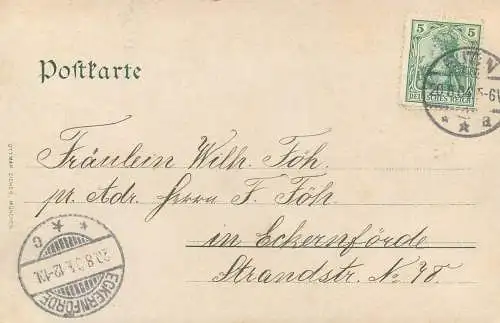 5 5
DEUTSCHES REICH
Postkarte
20.8.04. 5-6V
a
Fräulein Wilh. Föh.
pr. Adr. Herrn F. Föh.
in Eckernförde
Strandstr. No
ECKERNFÖRDE
20.8.04. 12-1N.
c